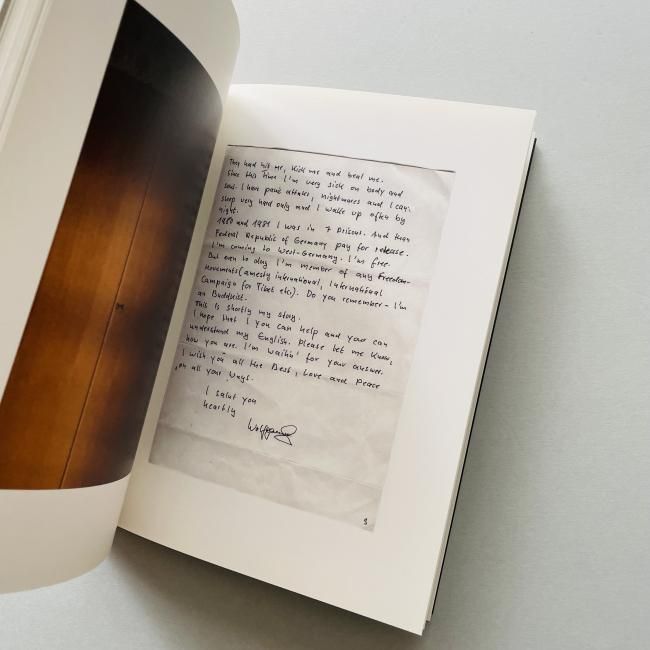 They had hit me, kick me and beat me.
Since this time I'm very sick on body and
soul. I have panic attaks, nightmares and I can
sleep very hard only and I walk up often by
night.
1980 and 1981 I was in 7 prisons. And than
Federal Republic of Germany pay for release.
I'm coming to West-Germany. I'm free.
But even to day I'm member of any Freedom-
Movements (amesty international, International
Campaign for Tibet etc). Do you remember - I'm
an Buddhist.
This is shortly my story.
I hope that I you can help and your can
understand my English. Please let me know,
how you are. I'm waitin' for your answer.
I wish you all the Best, Love and peace
on all your ways.
I salut you
heartly
Wolfgang
3